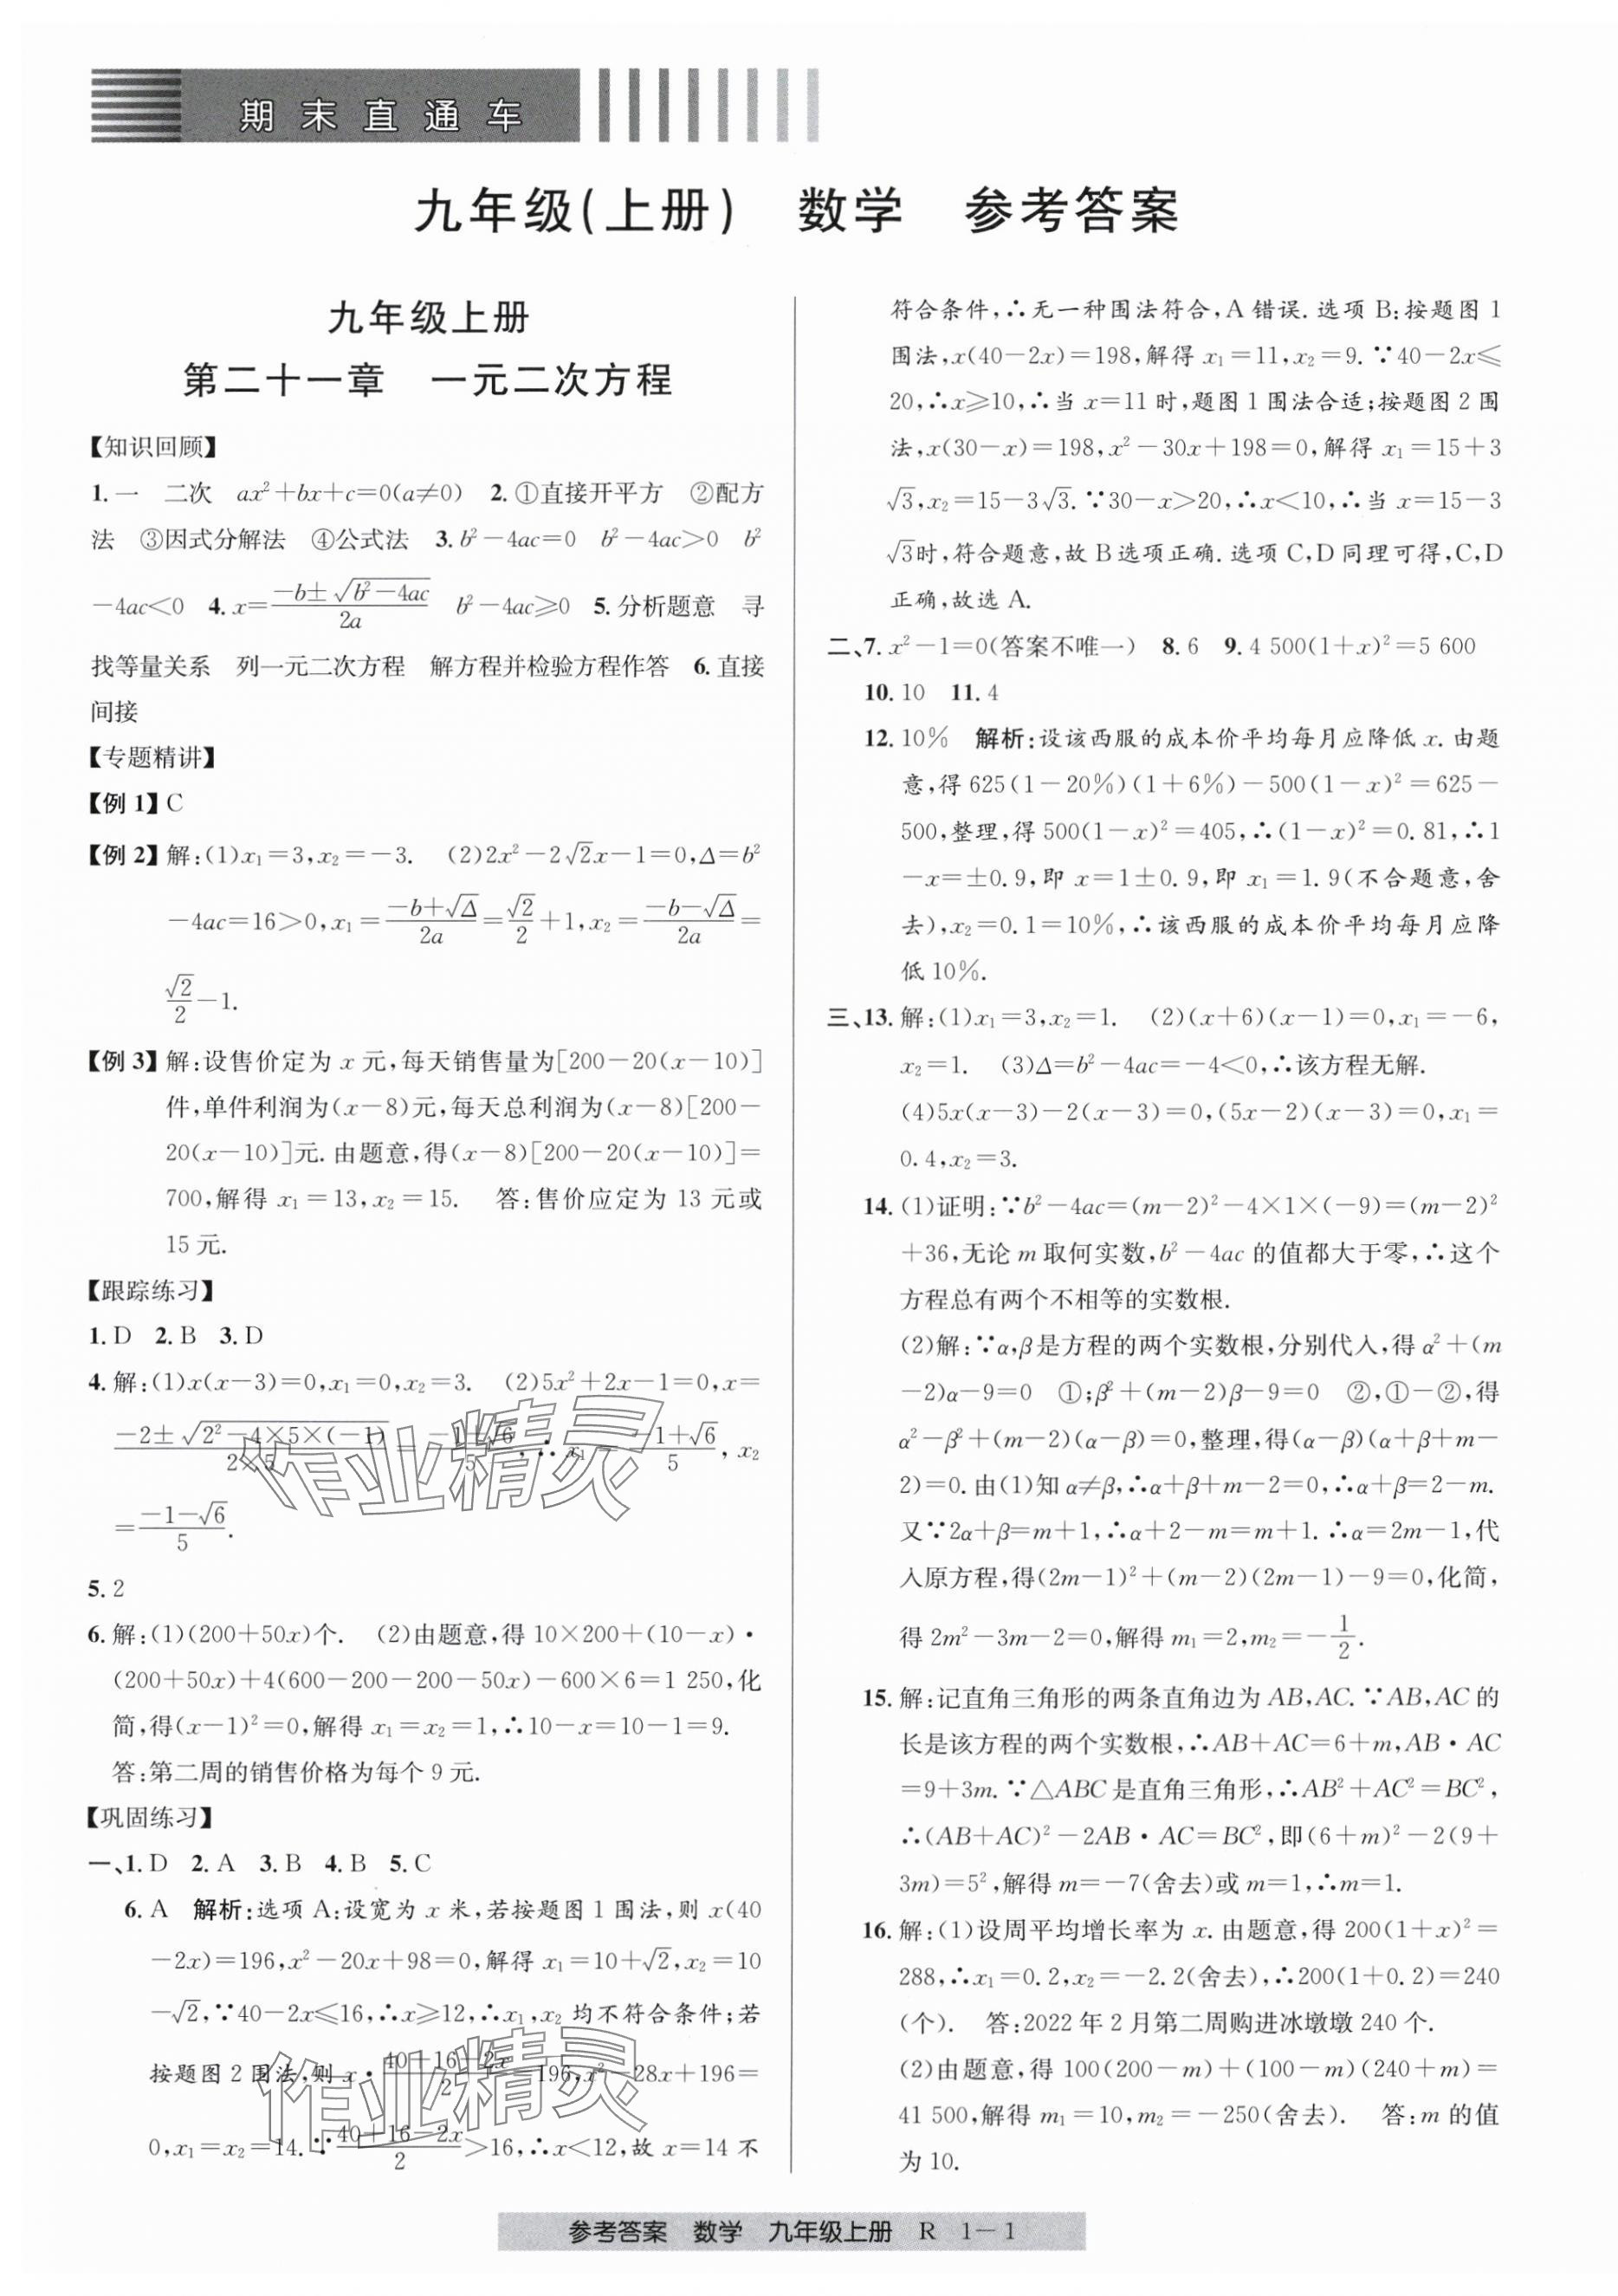 期末直通车
九年级(上册) 数学 参考答案
九年级上册
第二十一章 一元二次方程
【知识回顾】
1.一 二次 ax²+bx+c=0(a≠0) 2.①直接开平方 ②配方
法 ③因式分解法 ④公式法 3.b²-4ac=0 b²-4ac>0 b²
-4ac<0 4.x=\frac{-b±\sqrt{b²-4ac}}{2a} b²-4ac≥0 5.分析题意 寻
找等量关系 列一元二次方程 解方程并检验方程作答 6.直接
间接
【专题精讲】
【例1】C
【例2】解:(1)x₁=3,x₂=-3. (2)2x²-2√2x-1=0,Δ=b²
-4ac=16>0,x₁=\frac{-b+√Δ}{2a}=\frac{√2}{2}+1,x₂=\frac{-b-√Δ}{2a}=
\frac{√2}{2}-1.
【例3】解:设售价定为x元,每天销售量为[200-20(x-10)]
件,单件利润为(x-8)元,每天总利润为(x-8)[200-
20(x-10)]元.由题意,得(x-8)[200-20(x-10)]=
700,解得x₁=13,x₂=15. 答:售价应定为13元或
15元.
【跟踪练习】
1.D 2.B 3.D
4.解:(1)x(x-3)=0,x₁=0,x₂=3. (2)5x²+2x-1=0,x=
\frac{-2±\sqrt{2²-4×5×(-1)}}{2×5}=\frac{-1±√6}{5},∴x₁=\frac{-1+√6}{5},x₂
=\frac{-1-√6}{5}.
5.2
6.解:(1)(200+50x)个. (2)由题意,得10×200+(10-x)·
(200+50x)+4(600-200-200-50x)-600×6=1 250,化
简,得(x-1)²=0,解得x₁=x₂=1,∴10-x=10-1=9.
答:第二周的销售价格为每个9元.
【巩固练习】
一、1.D 2.A 3.B 4.B 5.C
6.A 解析:选项A:设宽为x米,若按题图1围法,则x(40
-2x)=196,x²-20x+98=0,解得x₁=10+√2,x₂=10
-√2,∵40-2x≤16,∴x≥12,∴x₁,x₂均不符合条件;若
按题图2围法,则x·\frac{40+16-2x}{2}=196,x²-28x+196=
0,x₁=x₂=14.∵\frac{40+16-2x}{2}>16,∴x<12,故x=14不
符合条件,∴无一种围法符合,A错误.选项B:按题图1
围法,x(40-2x)=198,解得x₁=11,x₂=9.∵40-2x≤
20,∴x≥10,∴当x=11时,题图1围法合适;按题图2围
法,x(30-x)=198,x²-30x+198=0,解得x₁=15+3
√3,x₂=15-3√3.∵30-x>20,∴x<10,∴当x=15-3
√3时,符合题意,故B选项正确.选项C,D同理可得,C,D
正确,故选A.
二、7.x²-1=0(答案不唯一) 8.6 9.4 500(1+x)²=5 600
10.10 11.4
12.10% 解析:设该西服的成本价平均每月应降低x.由题
意,得625(1-20%)(1+6%)-500(1-x)²=625-
500,整理,得500(1-x)²=405,∴(1-x)²=0.81,∴1
-x=±0.9,即x=1±0.9,即x₁=1.9(不合题意,舍
去),x₂=0.1=10%,∴该西服的成本价平均每月应降
低10%.
三、13.解:(1)x₁=3,x₂=1. (2)(x+6)(x-1)=0,x₁=-6,
x₂=1. (3)Δ=b²-4ac=-4<0,∴该方程无解.
(4)5x(x-3)-2(x-3)=0,(5x-2)(x-3)=0,x₁=
0.4,x₂=3.
14.(1)证明:∵b²-4ac=(m-2)²-4×1×(-9)=(m-2)²
+36,无论m取何实数,b²-4ac的值都大于零,∴这个
方程总有两个不相等的实数根.
(2)解:∵α,β是方程的两个实数根,分别代入,得α²+(m
-2)α-9=0 ①;β²+(m-2)β-9=0 ②,①-②,得
α²-β²+(m-2)(α-β)=0,整理,得(α-β)(α+β+m-
2)=0.由(1)知α≠β,∴α+β+m-2=0,∴α+β=2-m.
又∵2α+β=m+1,∴α+2-m=m+1.∴α=2m-1,代
入原方程,得(2m-1)²+(m-2)(2m-1)-9=0,化简,
得2m²-3m-2=0,解得m₁=2,m₂=-\frac{1}{2}.
15.解:记直角三角形的两条直角边为AB,AC.∵AB,AC的
长是该方程的两个实数根,∴AB+AC=6+m,AB·AC
=9+3m.∵△ABC是直角三角形,∴AB²+AC²=BC²,
∴(AB+AC)²-2AB·AC=BC²,即(6+m)²-2(9+
3m)=5²,解得m=-7(舍去)或m=1,∴m=1.
16.解:(1)设周平均增长率为x.由题意,得200(1+x)²=
288,∴x₁=0.2,x₂=-2.2(舍去),∴200(1+0.2)=240
(个). 答:2022年2月第二周购进冰墩墩240个.
(2)由题意,得100(200-m)+(100-m)(240+m)=
41 500,解得m₁=10,m₂=-250(舍去). 答:m的值
为10.
作业精灵
作业精灵
参考答案 数学 九年级上册 R 1-1